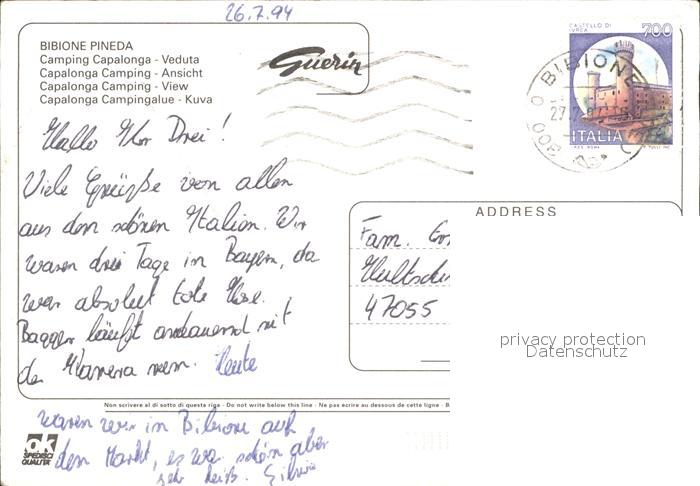 26.7.94
BIBIONE PINEDA
Camping Capalonga - Veduta
Capalonga Camping - Ansicht
Capalonga Camping - View
Capalonga Campingalue - Kuva
Guerin
CASTELLO DI IVREA
700
BIBIONE
ITALIA
Hallo Ihr Drei!
Viele Grüße von allen
aus dem schönen Italien. Wir
waren drei Tage in Bayern, da
war absolut tote Hose.
Bagger läuft andauernd mit
der Kamera rum. Heute
ADDRESS
Fam.
47055
privacy protection
Datenschutz
Non scrivere al di sotto di questa riga - Do not write below this line - Ne pas ecrire au dessous de cette ligne - B
waren wir in Bibione auf
dem Markt, es war schön aber
sehr heiß. Silvia
ok
SPEDISCI
QUALITÀ